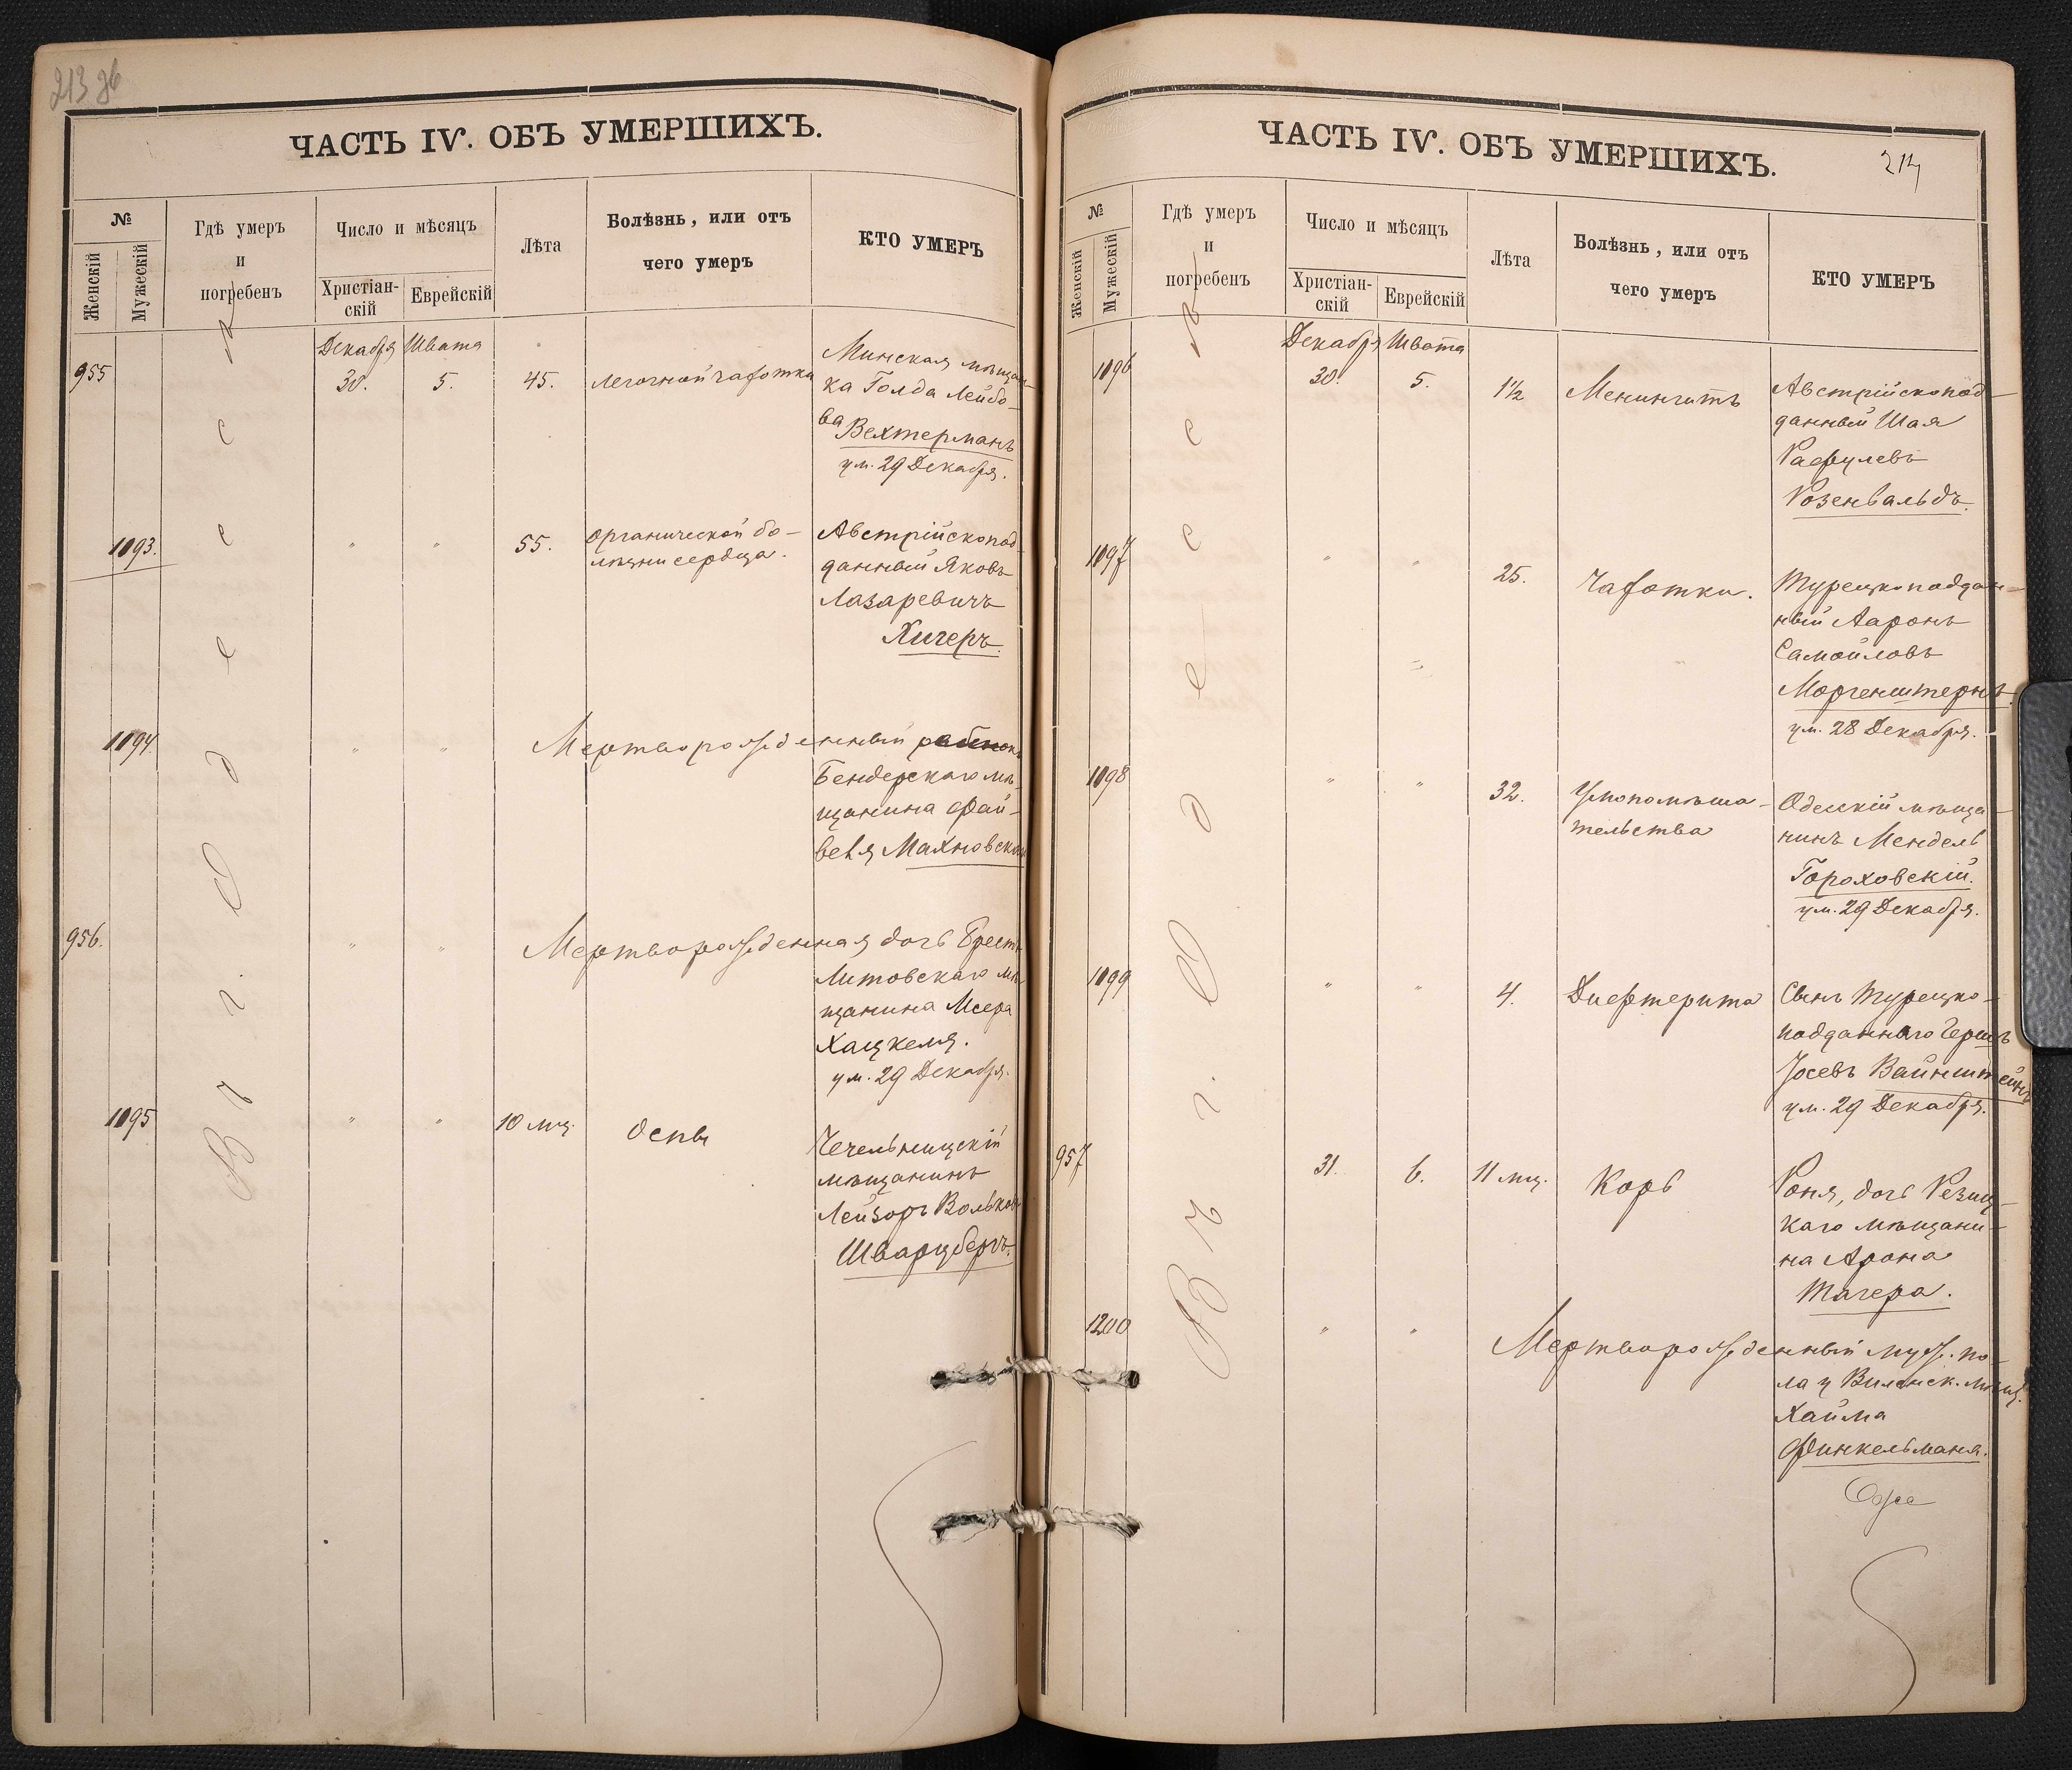 213 об
ЧАСТЬ IV. ОБЪ УМЕРШИХЪ.
№
Женскій
Мужескій
Гдѣ умеръ
и
погребенъ
Число и мѣсяцъ
Христіан-
скій
Еврейскій
Лѣта
Болѣзнь, или отъ
чего умеръ
КТО УМЕРЪ
Въ г. Одессѣ
Декабря Швата
955 30. 5. 45. легочной чахотки
Минская мѣщан-
ка Голда Лейбо-
ва Вехтерманъ
ум. 29 Декабря.
1193. " " 55. органической бо-
лѣзни сердца.
Австрійскопод-
данный Яковъ
Лазаревичъ
Хигеръ.
1194 " " Мертворожденный
Бендерскаго мѣ-
щанина Фай-
веля Махновскаго
956. " " Мертворожденная дочь Брестъ
Литовскаго мѣ-
щанина Меера
Хацкеля.
ум. 29 Декабря.
1195 " " 10 мц. Оспы
Чечельницкій
мѣщанинъ
Лейзоръ Вольковъ
Шварцбергъ.
ЧАСТЬ IV. ОБЪ УМЕРШИХЪ.
214
№
Женскій
Мужескій
Гдѣ умеръ
и
погребенъ
Число и мѣсяцъ
Христіан-
скій
Еврейскій
Лѣта
Болѣзнь, или отъ
чего умеръ
КТО УМЕРЪ
Въ г. Одессѣ
Декабря Швата
1196 30. 5. 1½ Менингитъ
Австрійскопод-
данный Шая
Рафулевъ
Розенвальдъ.
1197 " " 25. Чахотки.
Турецкоподдан-
ный Ааронъ
Самойловъ
Моргенштернъ
ум. 28 Декабря.
1198 " " 32. Умопомѣша-
тельства
Одесскій мѣща-
нинъ Мендель
Гороховскій.
ум. 29 Декабря.
1199 " " 4. Дифтерита
Сынъ Турецко-
подданнаго Гершъ
Іосевъ Вайнштейнъ
ум. 29 Декабря.
957 31. 6. 11 мц. Корь
Роня, дочь Резиц-
каго мѣщани-
на Арона
Тагера.
1200 " " Мертворожденный муж. по-
ла у Виленск. мѣщ.
Хаима
Финкельмана.